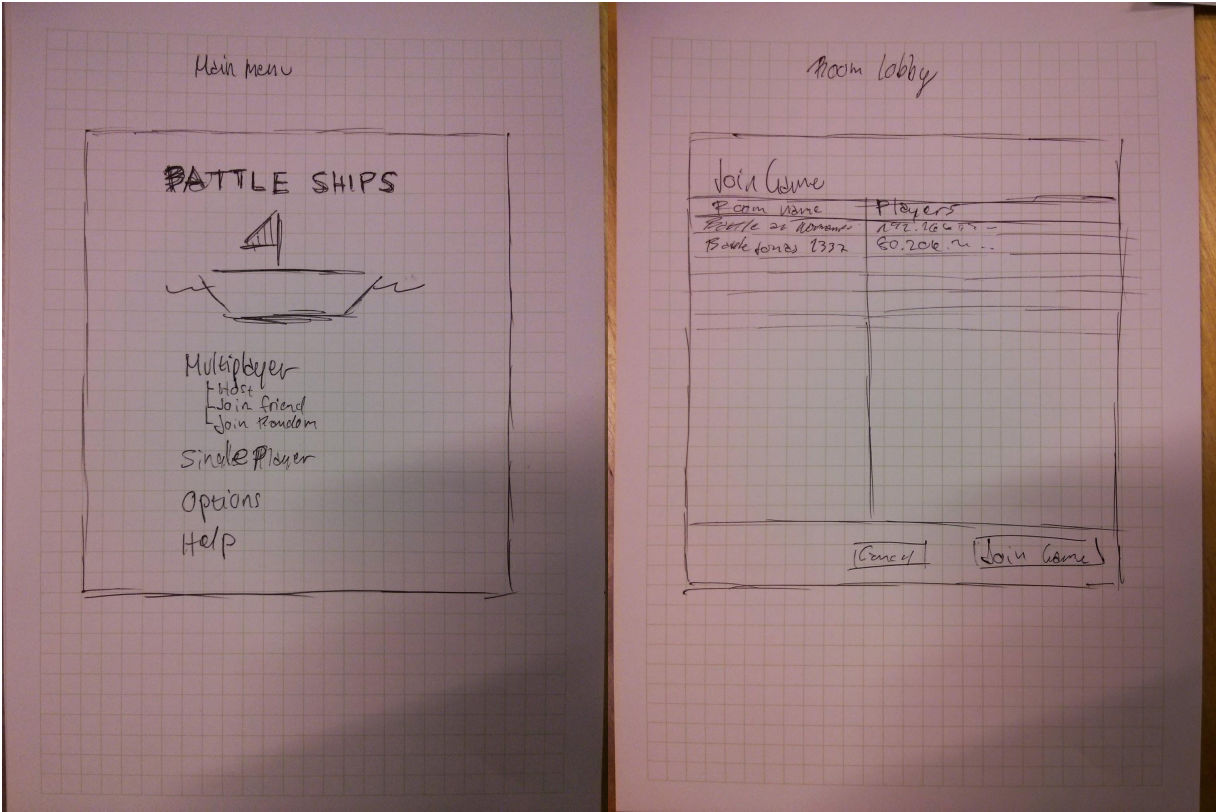 Main menu
BATTLE SHIPS
Multiplayer
Host
Join friend
Join Random
Single Player
Options
Help
Room lobby
Join Game
Room name Players
Battle
Battle 1337 80.206.
Cancel Join Game